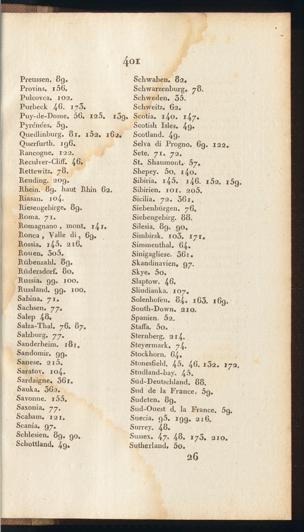 401
Preussen. 89.
Provins. 156.
Pulcovca. 102.
Purbeck 46. 173.
Puy-de-Dome. 56. 125. 139.
Pyrénées. 59.
Quedlinburg. 81. 152. 162.
Querfurth. 196.
Rancogne. 122.
Reculver-Cliff. 46.
Rettewitz. 78.
Rending. 209.
Rhein. 89. haut Rhin 62.
Riasan. 104.
Riesengebirge. 89.
Roma. 71.
Romagnano, mont. 141.
Ronca, Valle di, 69.
Rossia. 145. 216.
Rouen. 305.
Rübenzahl. 89.
Rüdersdorf. 80.
Russia. 99. 100.
Russland. 99. 100.
Sabina. 71.
Sachsen. 77.
Salep 48.
Salza-Thal. 76. 87.
Salzburg. 77.
Sanderheim. 181.
Sandomir. 99.
Sanese. 215.
Saratov. 104.
Sardaigne. 361.
Sauka. 362.
Savonne. 155.
Saxonia. 77.
Scabam. 121.
Scania. 97.
Schlesien. 89. 90.
Schottland. 49.
Schwaben. 82.
Schwarzenburg. 78.
Schweden. 35.
Schweitz. 62.
Scotia. 140. 147.
Scotish Isles. 49.
Scotland. 49.
Selva di Progno. 69. 122.
Sete. 71. 72.
St. Shaumont. 57.
Shepey. 50. 140.
Sibiria. 145. 146. 152. 159.
Sibirien. 101. 205.
Sicilia. 72. 361.
Siebenbürgen. 76.
Siebengebirg. 88.
Silesia. 89. 90.
Simbirsk. 103. 171.
Simmenthal. 64.
Sinigagliese. 361.
Skandinavien. 97.
Skye. 50.
Slaptow. 46.
Sliudianka. 107.
Solenhofen. 84. 163. 169.
South-Down. 210.
Spanien. 52.
Staffa. 50.
Sternberg. 214.
Steyermark. 74.
Stockhorn. 64.
Stonesfield. 45. 46. 132. 172.
Studland-bay. 45.
Süd-Deutschland. 88.
Sud de la France. 59.
Sudeten. 89.
Sud-Ouest d. la France. 59.
Suecia. 95. 199. 216.
Surrey. 48.
Sussex. 47. 48. 173. 210.
Sutherland. 50.
26